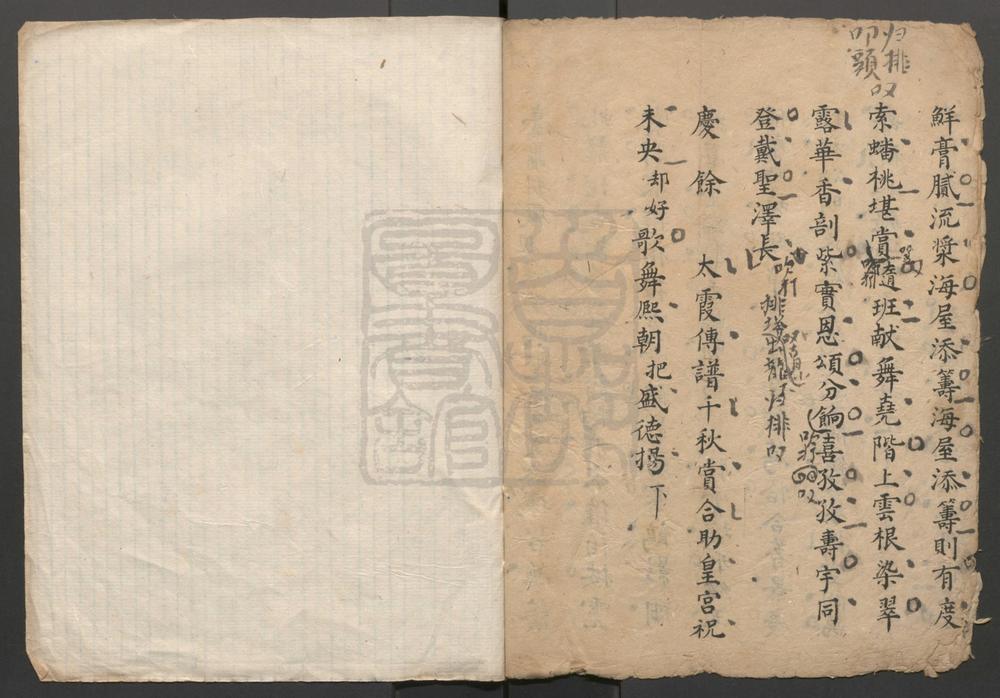 归排
叩頭
又
鮮膏膩流漿海屋添籌海屋添籌則有度
索蟠桃堪賞隨班献舞堯階上雲根染翠
露華香剖紫實恩頌分餉喜孜孜壽宇同
登戴聖澤長
吹打
归排又
慶餘 太霞傳譜千秋賞合助皇宮祝
未央却好歌舞熈朝把盛徳揚下